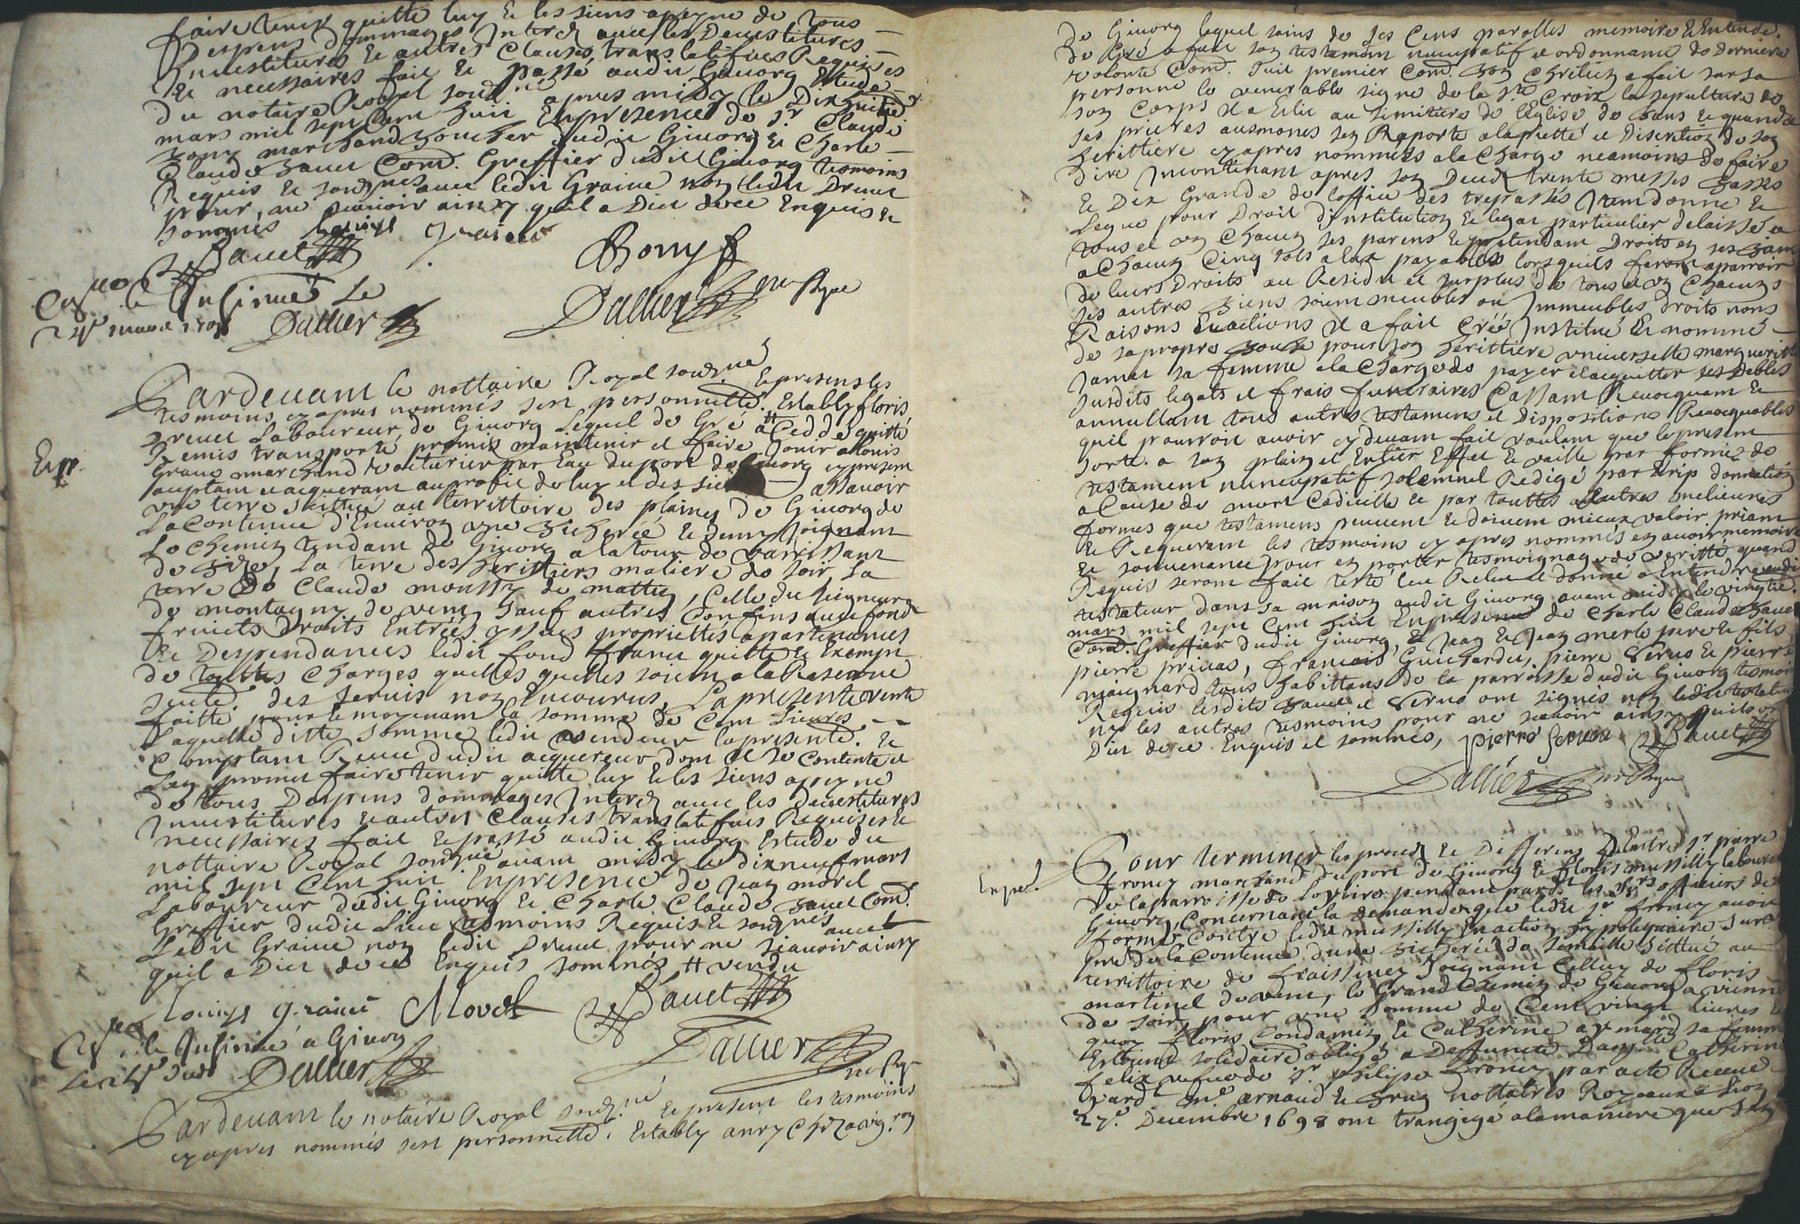 faire tenir quitte luy & les siens a peyne de tous
despens dommages Interetz avec les Devestitures
Investitures & autres Clauses translatifves Requises
& necessaires fait & passé audit Givorg Estude
du notaire Royal soubné apres midy le Dixhuitie
mars mil sept Cent huit En presence de sr Claude
Bony marchand boucher dudit Givorg & Charle
Claude Bauet Comd. Greffier dudit Givorg temoins
Requis & soubnes avec ledit Graine non ledit Drevet
pour ne scavoir ainsy quil a Dict dece Enquis &
sommés Louys graine
Bauet Bony
Dallier no Rgue
le Insinué le
24e mars 1708 Dallier
Pardevant le nottaire Royal soubné & presens les
tesmoins cy apres nommés sert personnelle. Estably floris
Drevet Laboureur de Givorg Lequel de Gré a Ceddé quitté
Remis transporté promis maintenir et faire Jouir a Louis
Graine marchand voiturier par Eau du port de Givorg cy present
acceptant & acquerant au profit de luy et des siens assavoir
une terre scittuée au territtoire des plaines de Givorg de
La Contenue d'Environ une Bicherée & demy Joignant
Le Chemin tendant de Givorg a la tour de Varissant
de Bize, La terre des heritiers maliere de soir, La
terre de Claude moussy de mattin, Celle du seigneur
de montagny de vent sauf autres Confins avec fond
fruicts Droits Entrées yssues proprietés apartenances
& Despendances ledit fond franc quitte & Exempt
de touttes Charges quelles quelles soient a la Reserve
des servis non Encourus. La presente vente
faitte pour & moyenant la somme de Cent Livres
Laquelle ditte somme ledit vendeur la presente. &
Comptant Receue dudit acquereur dont il se Contente &
Len promet faire tenir quitte luy & les siens a peyne
de tous Despens dommages Interetz avec les devestitures
Investitures & autres Clauses translatifves Requises &
necessaires fait & passé audit Givorg Estude du
nottaire Royal soubné avant midy le dixneuf mars
mil sept Cent huit En presence de Jean morel
Laboureur dudit Givorg & Charle Claude Bauet Comd.
Greffier dudit Lieu tesmoins Requis & soubnes avec
Ledit Graine non ledit Drevet pour ne scavoir ainsy
quil a Dict de ce Enquis sommés # vendu
Louys graine Morel Bauet
le Insinué a Givorg
Dallier Dallier no Rgue
Pardevant le notaire Royal soubné & present les tesmoins
cy apres nommés sert personnelle. Estably
Exp.
de Givorg lequel sains de ses Cens parolles memoire & Entende.
de Gré a fait son testament nuncupatif et ordonnance de derniere
volonté Comd. suit premier Comd. bon Chretien a fait sur sa
personne le venerable signe de la Ste Croix la sepulture de
son Corps il a Eslu au simittiere de l'Eglise de ceans & quand a
ses prieres ausmones sen Raporte a la pietté et Discretion de son
herittiere cy apres nommés a la Charge neamoins de faire
dire Incontinant apres son Deced trente messes basses
& Dix Grande de loffice des trepassés Item donne &
Legue pour Droit d'Institution & legat particulier delaisse a
tous et un Chacun ses parens & pretendant Droits en ses biens
a Chacun Cinq sols a eux payables lorsquils feront aparroir
de leurs Droits au Residu et surplus de tous et un Chacuns
ses autres biens soient meubles ou Immeubles Droits noms
Raisons & actions il a fait Créé Institué & nommé
de sa propre bouche pour son herittiere universelle marguerite
Jamet sa femme a la Charge de payer et acquitter ses Debtes
susdits legats et frais funeraires Cassant Revocquant &
annullant tous autres testamens et dispositions Revocquables
quil pourroit avoir cy devant fait voulant que le present
sorte a son plain et Entier Effet & vaille par forme de
testament nuncupatif solemnel Redigé par Escrip donnation
a Cause de mort Codicille et par touttes autres melieures
formes que testamens peuvent & doivent mieux valoir priant
& Requerant les tesmoins cy apres nommés en avoir memoire
& souvenance pour en porter tesmoignage de veritté quand
Requis seront fait
testateur dans sa maison audit Givorg avant midy le vingtie
mars mil sept Cent huit En presence de Charle Claude Bauet
Comd. Greffier dudit Givorg, & Jean & Jean merle pere & fils
pierre privas, francois Guichardet, pierre Servo & pierre
maignard tous habittans de la parroisse dudit Givorg tesmoins
Requis lesdits Bauet et Servo ont signés non ledit testateur
ny les autres tesmoins pour ne scavoir ainsy quils ont
Dict de ce Enquis et sommés, pierre Servo Bauet
Dallier no Rgue
Exped.
Pour terminer les proces & Differens D'entre Sr. pierre
froney marchand du port de Givorg & floris mussilly laboureur
de la parroisse de Loyre pendant pardt. les srs officiers de
Givorg Concernant la demande que ledit Sr. froney avoit
formé Contre ledit mussilly En action hypotequaire sur
de la Contenue d'une bicherée da semaille scittué au
territtoire de fraissiney Joignant Celluy de floris
martinel de vent, le Grand Chemin de Givorg a vienne
de soir, pour une somme de Cent vingt livres
quoy floris Condamin & Catherine aymard sa femme
Estoient solidaire obligé a Deffuncte Damlle Catherine
felix vefve de Sr. philipe froney par acte Receue
pardt. me. arnaud & brun nottaires Royaux a Lion
27e. Decembre 1698 ont transigé a la maniere que sen